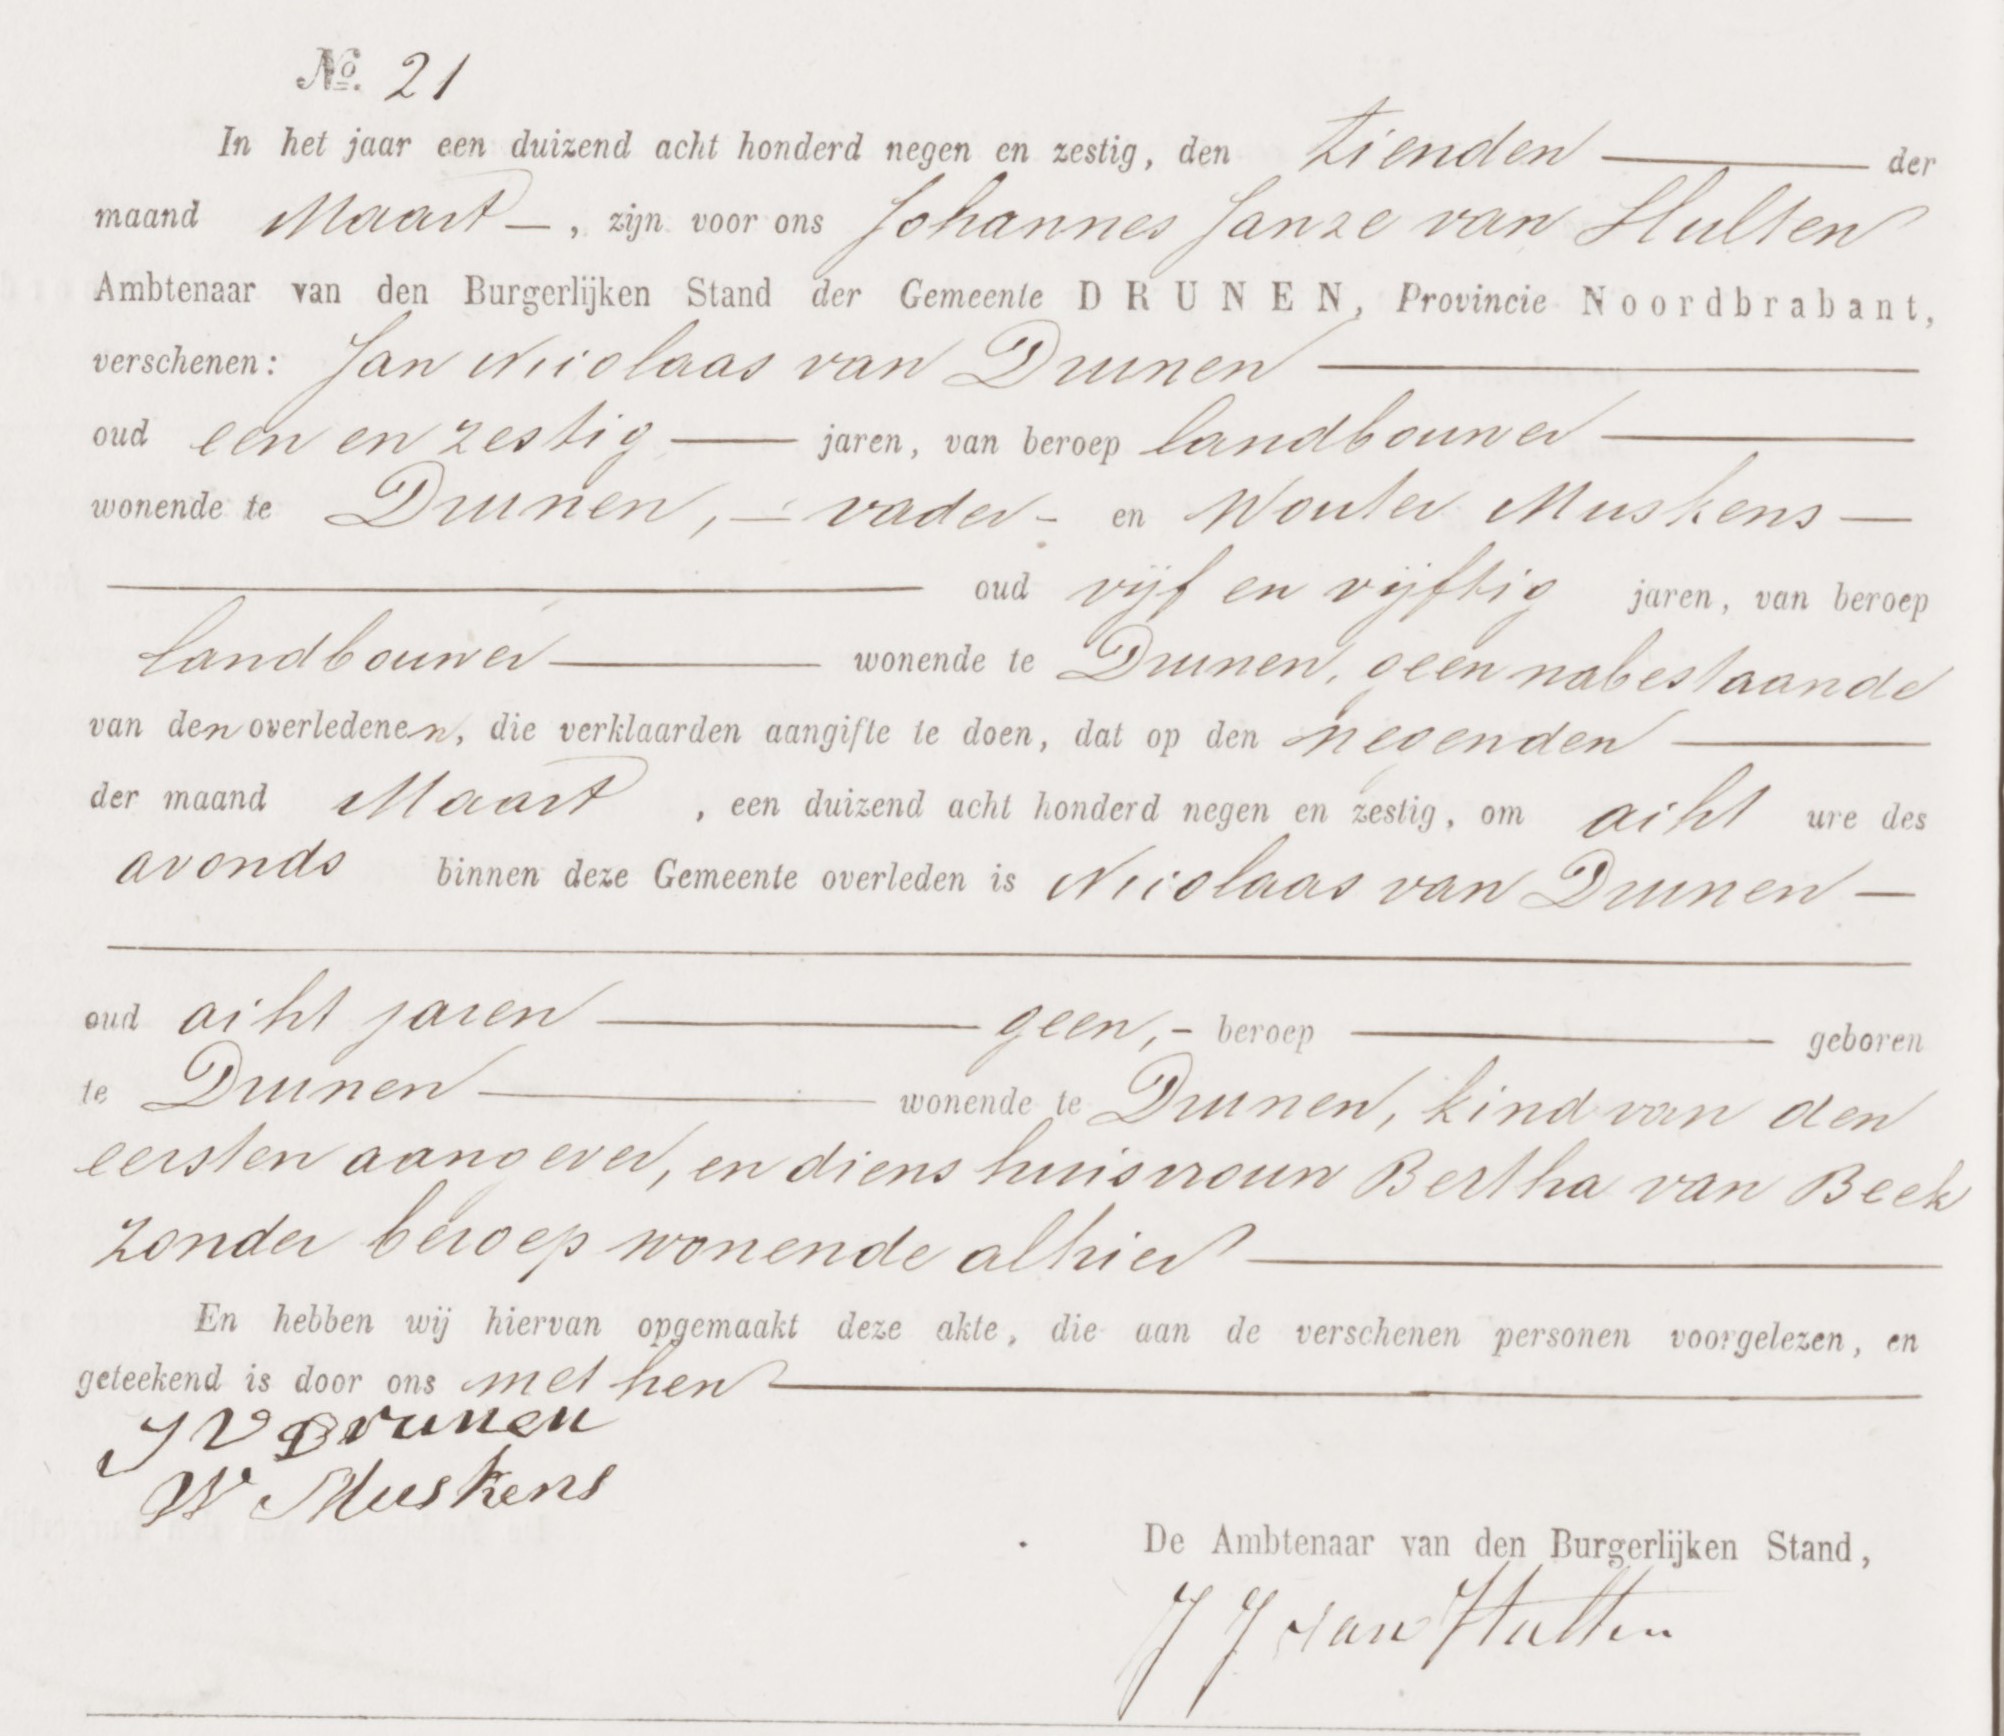 No. 21
In het jaar een duizend acht honderd negen en zestig, den tienden der
maand Maart —, zijn voor ons Johannes Janze van Hulten
Ambtenaar van den Burgerlijken Stand der Gemeente DRUNEN, Provincie Noordbrabant,
verschenen: Jan Nicolaas van Drunen
oud een en zestig — jaren, van beroep landbouwer
wonende te Drunen, — vader - en Wouter Muskens —
oud vijf en vijftig jaren, van beroep
landbouwer — wonende te Drunen, geen nabestaande
van den overledenen, die verklaarden aangifte te doen, dat op den negenden
der maand Maart, een duizend acht honderd negen en zestig, om acht ure des
avonds binnen deze Gemeente overleden is Nicolaas van Drunen —
oud acht jaren — geen, - beroep — geboren
te Drunen — wonende te Drunen, kind van den
eersten aangever, en diens huisvrouw Bertha van Beek
zonder beroep wonende alhier
En hebben wij hiervan opgemaakt deze akte, die aan de verschenen personen voorgelezen, en
geteekend is door ons met hen
J V Drunen
W Muskens
De Ambtenaar van den Burgerlijken Stand,
J J van Hulten